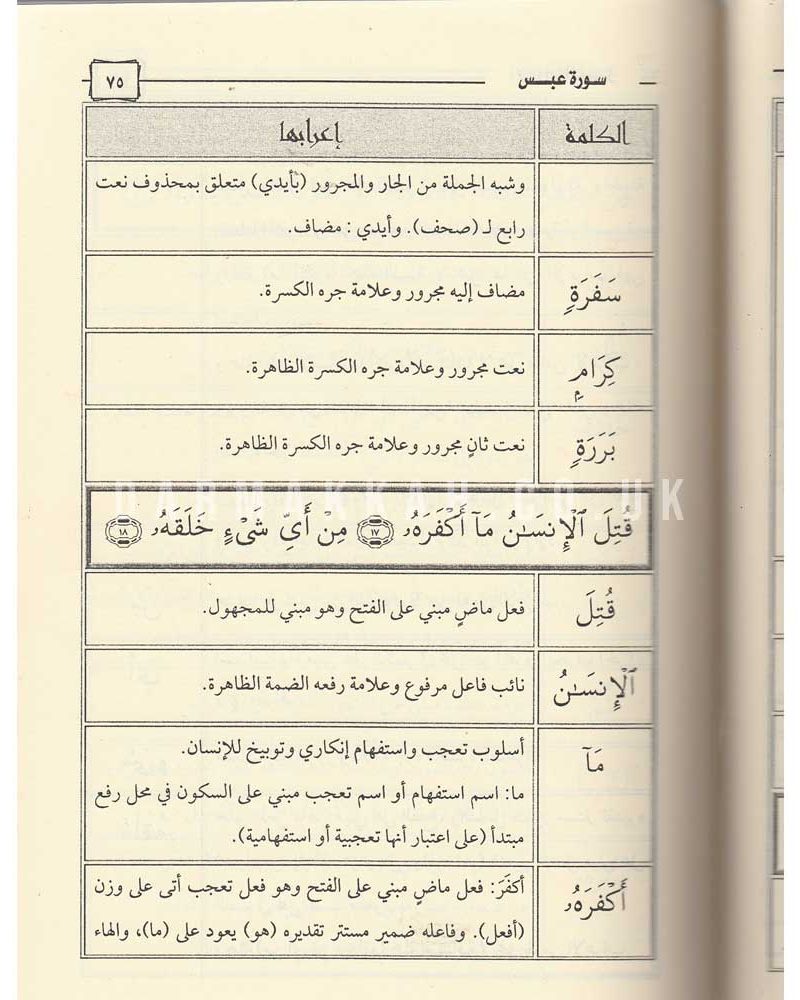 سورة عبس
٧٥
الكلمة
إعرابها
وشبه الجملة من الجار والمجرور (بأيدي) متعلق بمحذوف نعت
رابع لـ (صحف). وأيدي : مضاف.
سَفَرَةٍ
مضاف إليه مجرور وعلامة جره الكسرة.
كِرَامٍ
نعت مجرور وعلامة جره الكسرة الظاهرة.
بَرَرَةٍ
نعت ثانٍ مجرور وعلامة جره الكسرة الظاهرة.
DARMAKKAH.CO.UK
قُتِلَ ٱلْإِنسَـٰنُ مَآ أَكْفَرَهُۥ ١٧ مِنْ أَىِّ شَىْءٍ خَلَقَهُۥ ١٨
قُتِلَ
فعل ماضٍ مبني على الفتح وهو مبني للمجهول.
ٱلْإِنسَـٰنُ
نائب فاعل مرفوع وعلامة رفعه الضمة الظاهرة.
مَآ
أسلوب تعجب واستفهام إنكاري وتوبيخ للإنسان.
ما: اسم استفهام أو اسم تعجب مبني على السكون في محل رفع
مبتدأ (على اعتبار أنها تعجبية أو استفهامية).
أَكْفَرَهُۥ
أكفَرَ: فعل ماضٍ مبني على الفتح وهو فعل تعجب أتى على وزن
(أفعل). وفاعله ضمير مستتر تقديره (هو) يعود على (ما)، والهاء